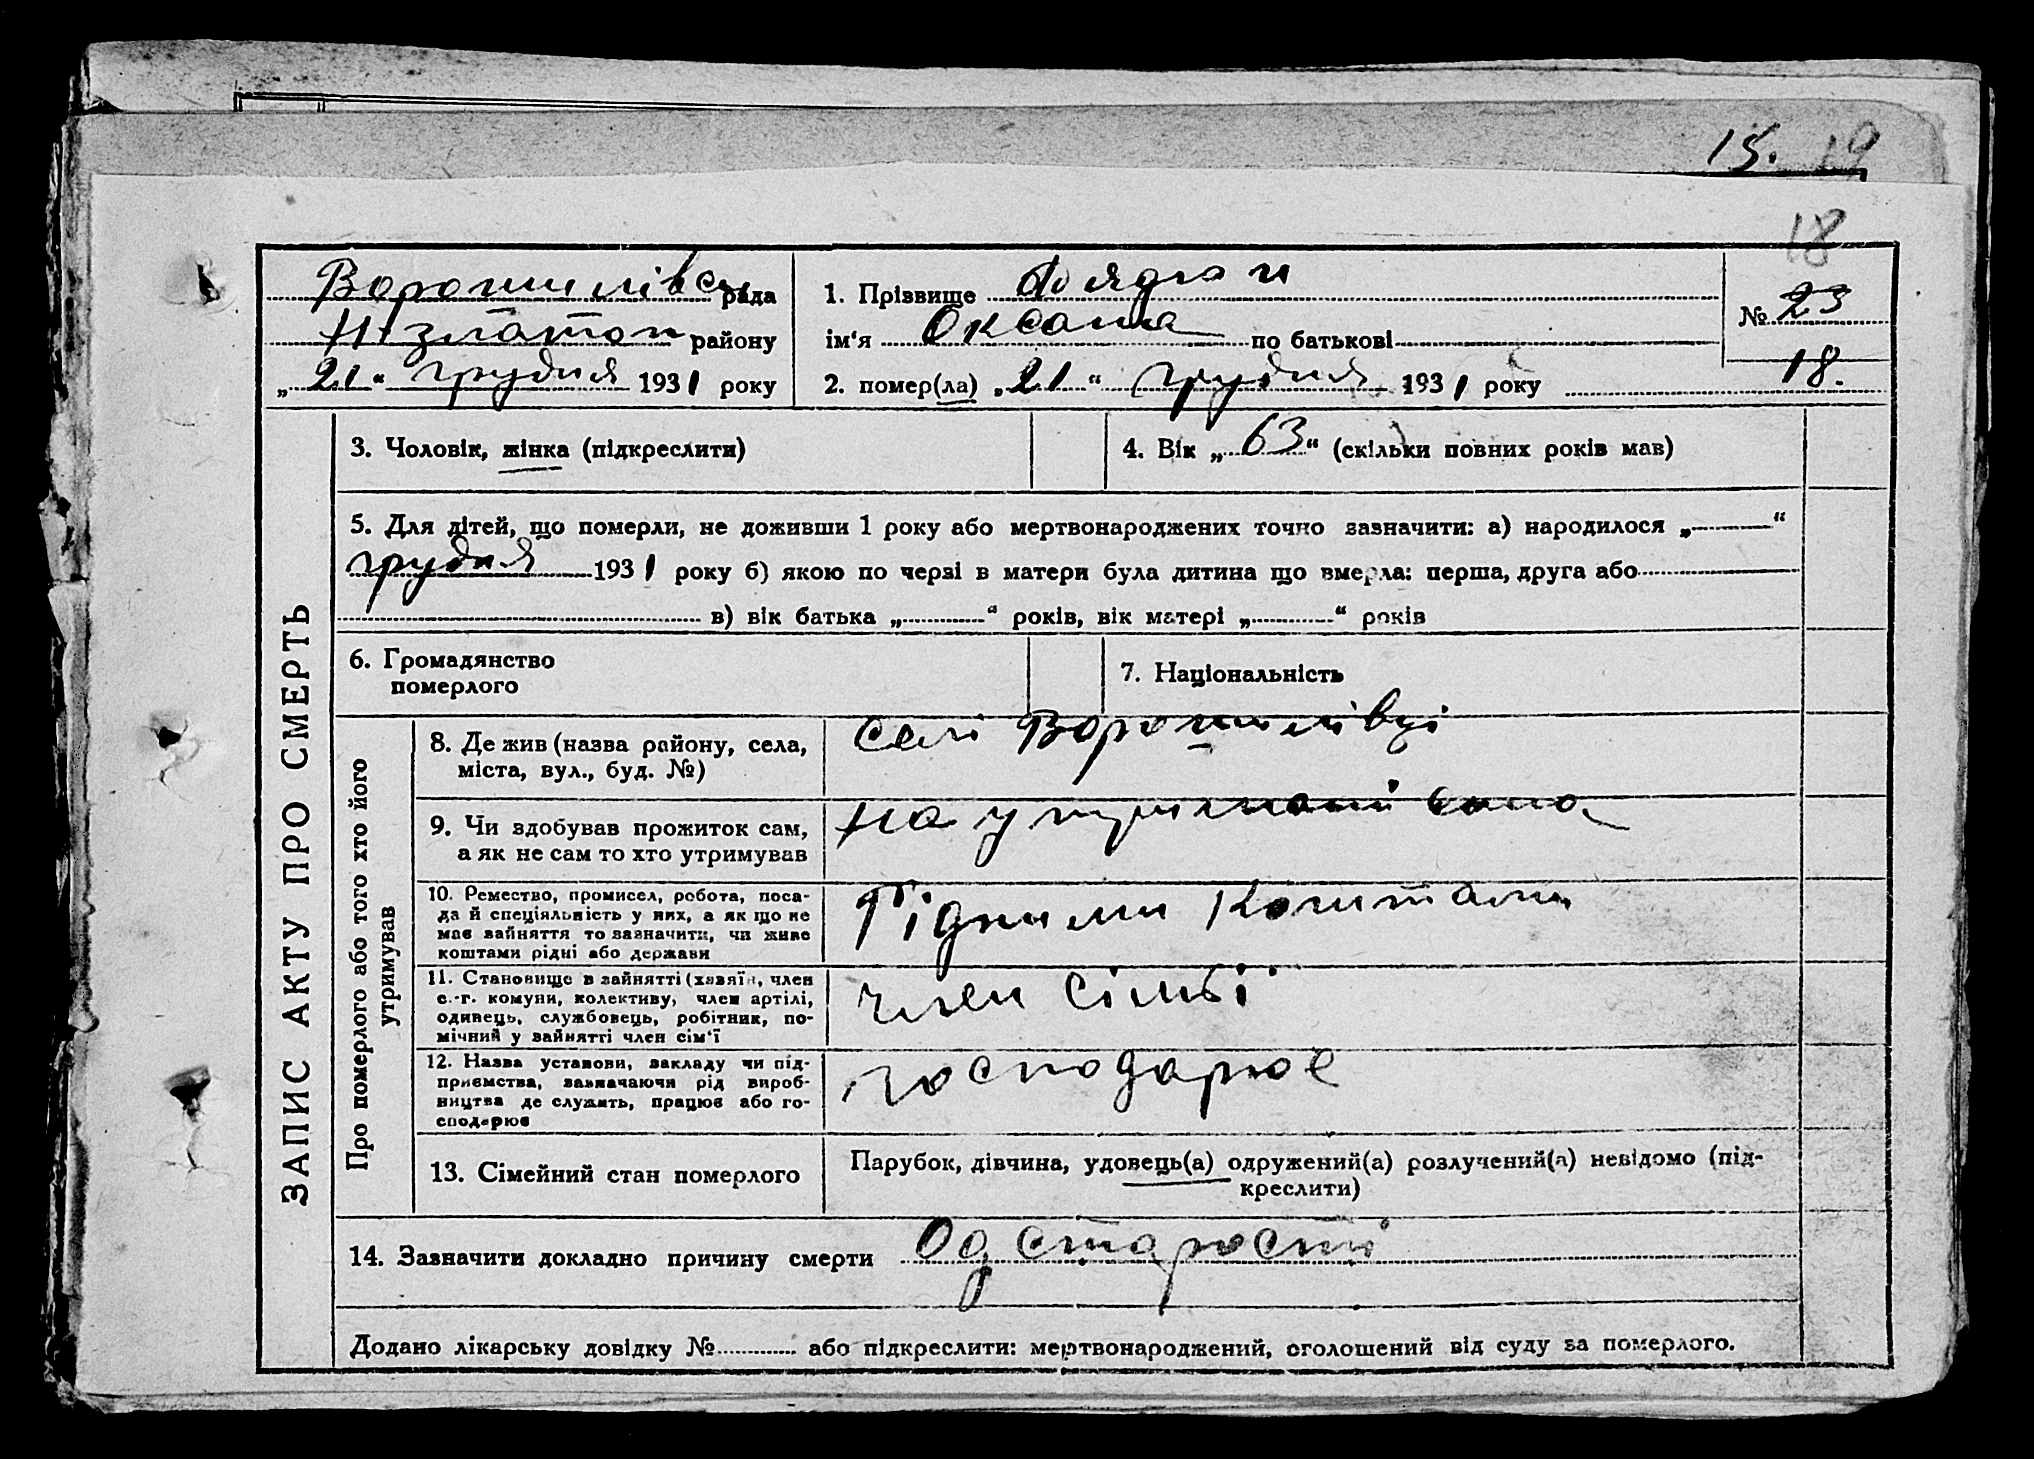 15. 19
18
Ворошилівськ рада
Н. Златоп району
„21“ грудня 1931 року
1. Прізвище
ім'я Оксана по батькові
2. помер(ла) „21“ грудня 1931 року
№ 23
18.
ЗАПИС АКТУ ПРО СМЕРТЬ
3. Чоловік, жінка (підкреслити)
4. Вік „63“ (скільки повних років мав)
5. Для дітей, що померли, не доживши 1 року або мертвонароджених точно зазначити: а) народилося „ “
грудня 1931 року б) якою по черзі в матери була дитина що вмерла: перша, друга або
в) вік батька „ “ років, вік матері „ “ років
6. Громадянство
померлого
7. Національність
Про померлого або того хто його
утримував
8. Де жив (назва району, села,
міста, вул., буд. №)
селі Ворошилівці
9. Чи здобував прожиток сам,
а як не сам то хто утримував
на утриманні сина
10. Ремество, промисел, робота, поса-
да й спеціяльність у них, а як що не
має зайняття то зазначити, чи живе
коштами рідні або держави
Рідними коштами
11. Становище в зайнятті (хазяїн, член
с.-г. комуни, колективу, член артілі,
одинець, службовець, робітник, по-
мічний у зайнятті член сім'ї
член сімьі
12. Назва установи, закладу чи під-
приємства, зазначаючи рід вироб-
ництва де служить, працює або го-
сподарює
господарює
13. Сімейний стан померлого
Парубок, дівчина, удовець(а) одружений(а) розлучений(а) невідомо (під-
креслити)
14. Зазначити докладно причину смерти Од старости
Додано лікарську довідку № або підкреслити: мертвонароджений, оголошений від суду за померлого.